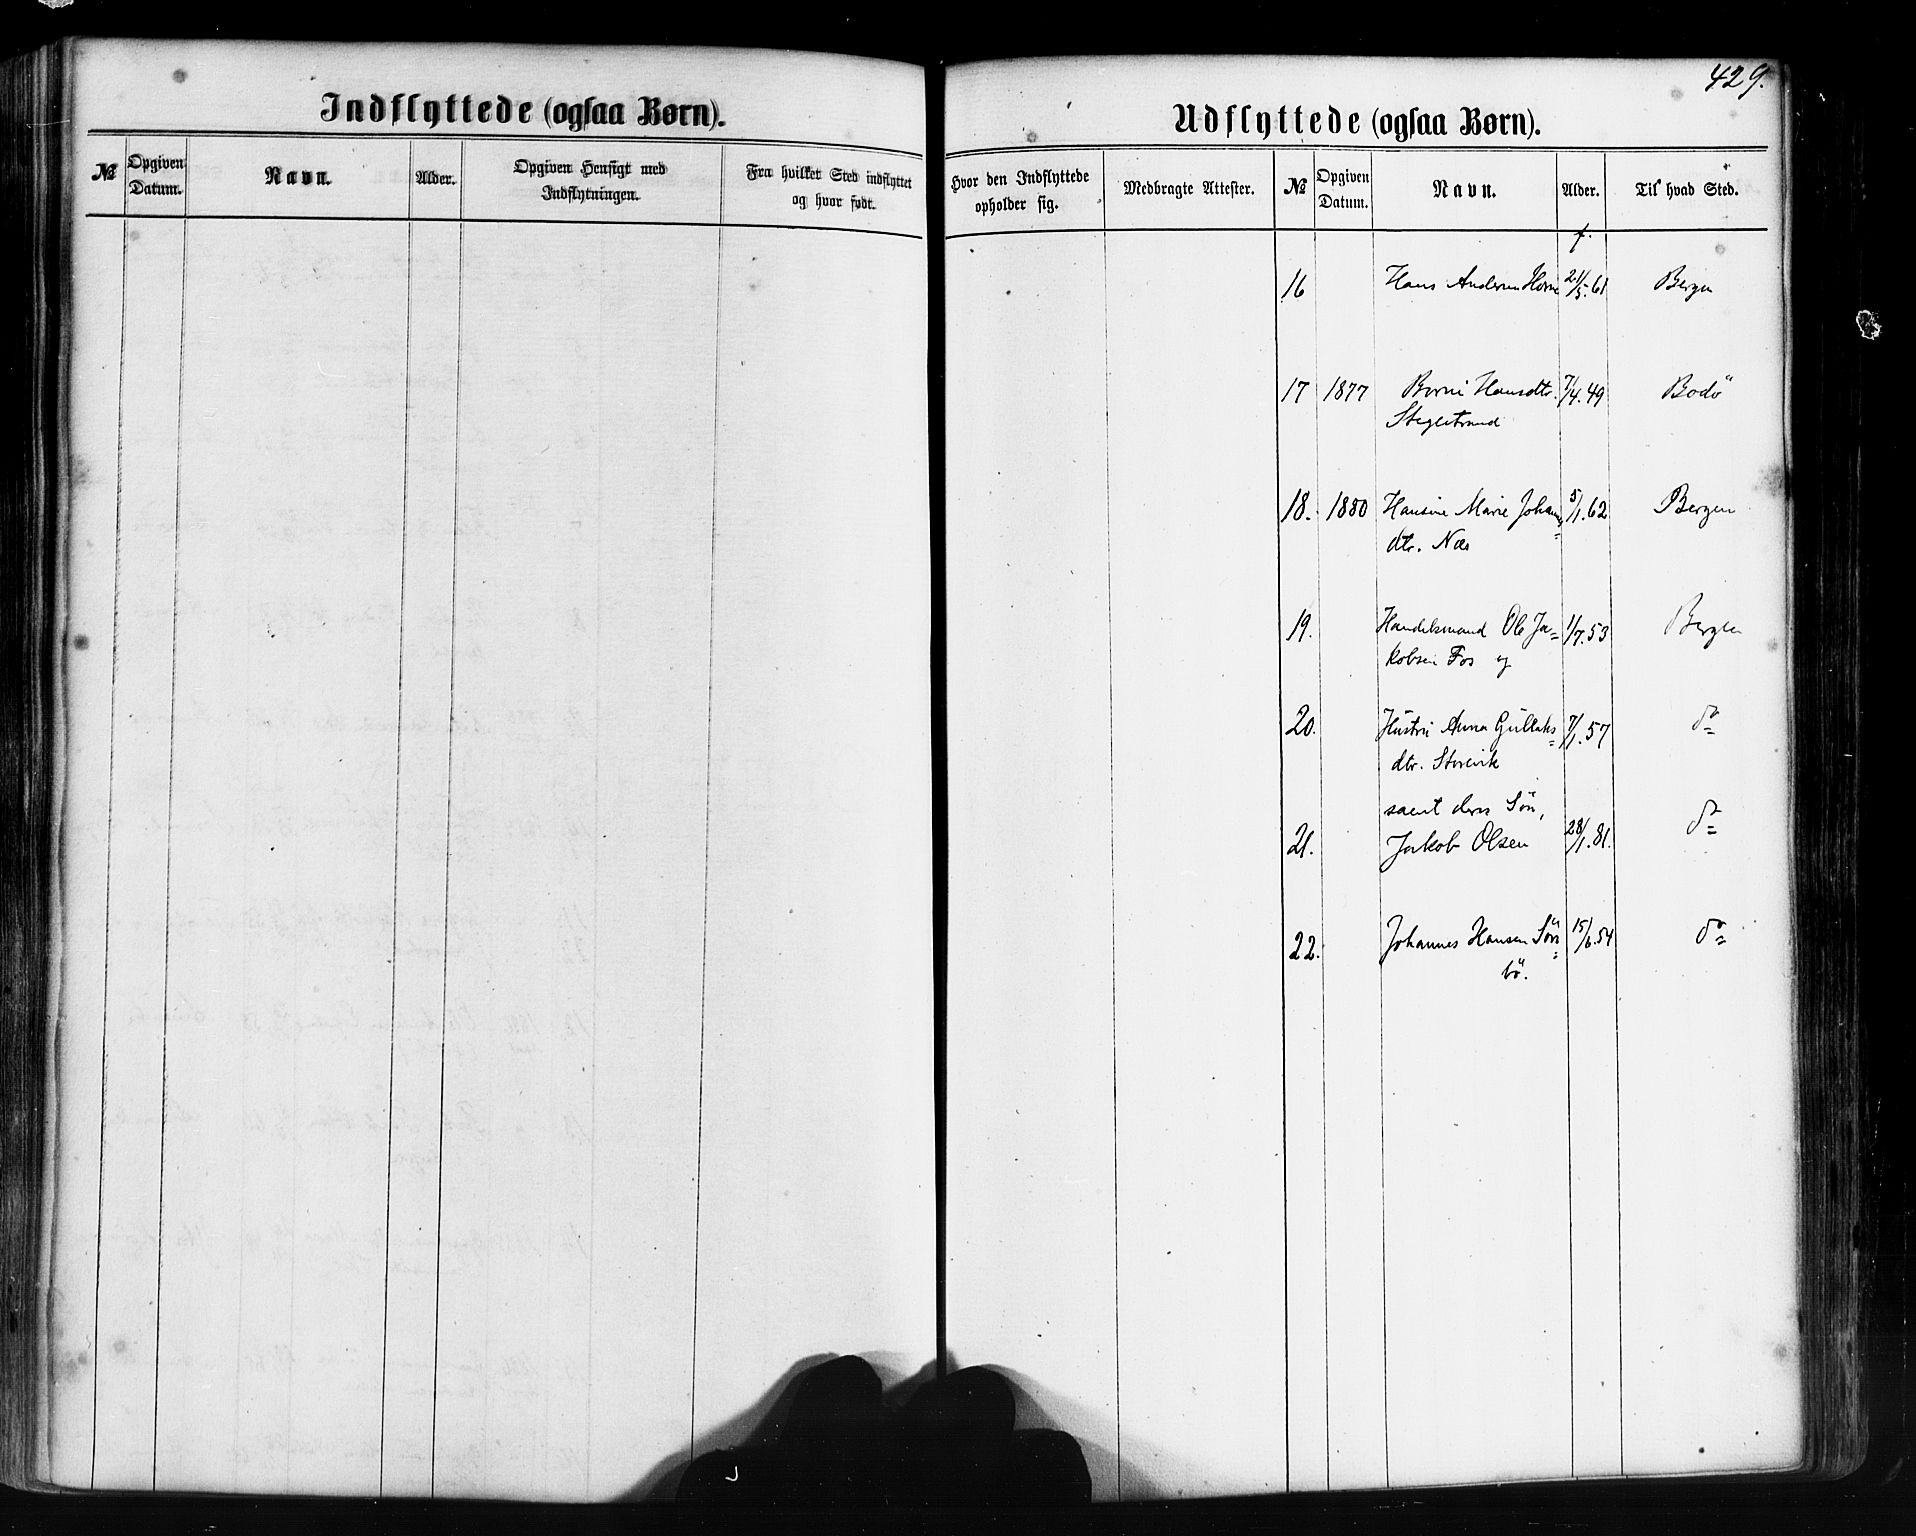 429.
Indflyttede (ogsaa Børn).
№ Opgiven Datum. Navn. Alder. Opgiven Hensigt med Indflytningen. Fra hvilket Sted indflyttet og hvor født.
Udflyttede (ogsaa Børn).
Hvor den Indflyttede opholder sig. Medbragte Attester. № Opgiven Datum. Navn. Alder. Til hvad Sted.
f.
16 Hans Andersen 21/5.61 Bergen
17 1877 Hansdtr. 7/4.49 Bodö
18. 1880 Hansine Marie Johannes= 5/1.62 Bergen
dtr. Næs
19. Handelsmand Ole Ja= 1/7.53 Bergen
kobsen Fos og
20. Hustru Anna Gullaks= 7/1.57 do=
dtr. Storevik
samt deres Sön,
21. Jakob Olsen 28/1.81. do=
22. Johannes Hansen Sör= 15/6.54 do=
bö.